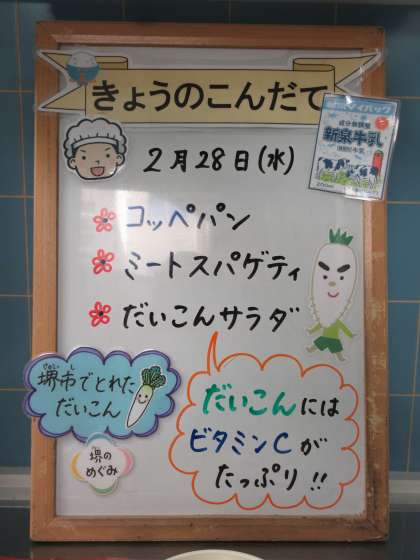 きょうのこんだて
2月28日(水)
成分無調整
新泉牛乳
コッペパン
ミートスパゲティ
だいこんサラダ
堺市でとれた
だいこん
堺の
めぐみ
だいこんには
ビタミンCが
たっぷり!!